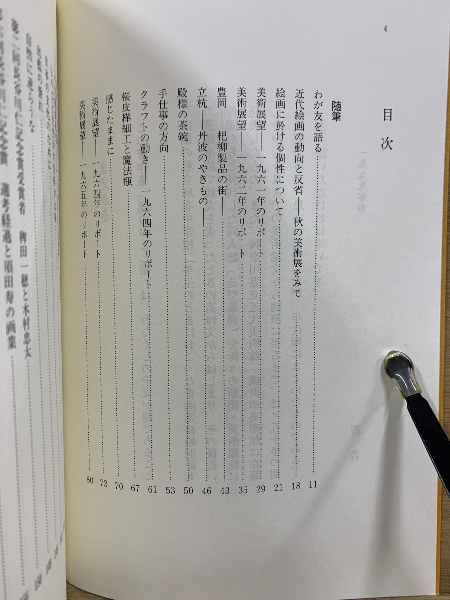 4
目次
随筆
わが友を語る 11
近代絵画の動向と反省──秋の美術展をみて 18
絵画に於ける個性について 21
美術展望──一九六一年のリポート 29
美術展望──一九六二年のリポート 35
豊岡──杞柳製品の街── 43
立杭──丹波のやきもの── 46
殿様の茶碗 50
手仕事の方向 53
クラフトの動き──一九六四年のリポート 61
桜皮様細工と魔法瓶 67
感じたままに 70
美術展望──一九六四年のリポート 73
美術展望──一九六五年のリポート 80